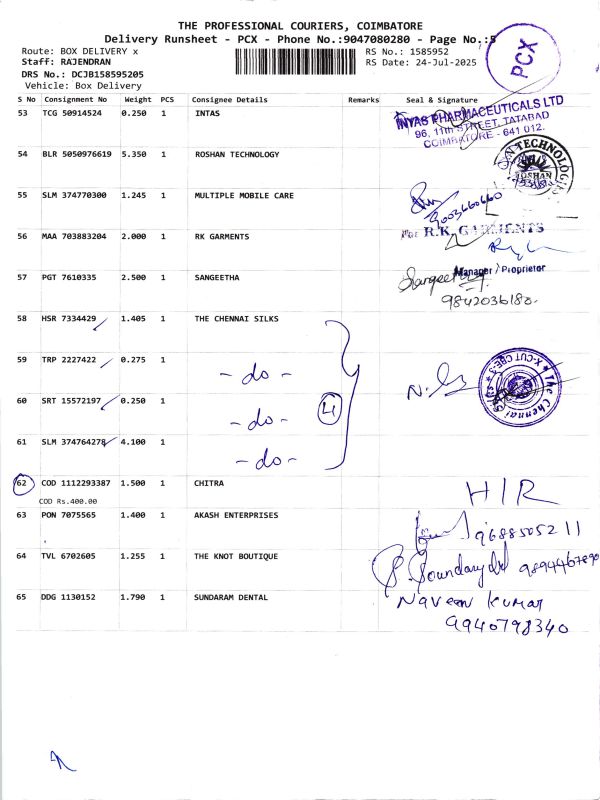 THE PROFESSIONAL COURIERS, COIMBATORE
Delivery Runsheet - PCX - Phone No.:9047080280 - Page No.:5
PCX
Route: BOX DELIVERY x
RS No.: 1585952
Staff: RAJENDRAN
RS Date: 24-Jul-2025
DRS No.: DCJB158595205
Vehicle: Box Delivery
S No Consignment No Weight PCS Consignee Details Remarks Seal & Signature
53 TCG 50914524 0.250 1 INTAS
INTAS PHARMACEUTICALS LTD
96, 11th STREET, TATABAD
COIMBATORE - 641 012.
54 BLR 5050976619 5.350 1 ROSHAN TECHNOLOGY
ROSHAN
55 SLM 374770300 1.245 1 MULTIPLE MOBILE CARE
9003660660
56 MAA 703883204 2.000 1 RK GARMENTS
For R.K. GARMENTS
Manager / Proprietor
57 PGT 7610335 2.500 1 SANGEETHA
Sangeetha
9842036180.
58 HSR 7334429 1.405 1 THE CHENNAI SILKS
59 TRP 2227422 0.275 1
- do -
The Chennai
60 SRT 15572197 0.250 1
- do -
4
61 SLM 374764278 4.100 1
- do -
62 COD 1112293387 1.500 1 CHITRA
H/R
COD Rs.400.00
63 PON 7075565 1.400 1 AKASH ENTERPRISES
9688505211
64 TVL 6702605 1.255 1 THE KNOT BOUTIQUE
65 DDG 1130152 1.790 1 SUNDARAM DENTAL
Naveen Kumar
9940798340